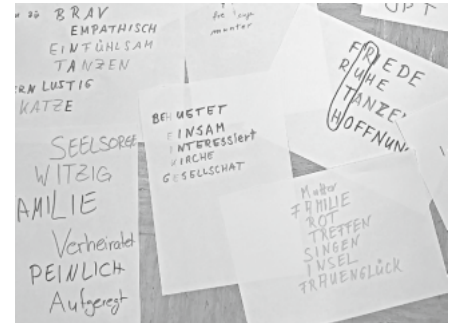 BRAV
EMPATHISCH
EINFÜHLSAM
TANZEN
LUSTIG
KATZE
SEELSORGE
WITZIG
AMILIE
Verheiratet
PEINLICH
Aufgeregt
munter
BEHUETET
EINSAM
INTERESSiert
KIRCHE
GESELLSCHAT
FRIEDE
RUHE
TANZE
HOFFNUN
Mutter
FAMILIE
ROT
TREFFEN
SINGEN
INSEL
FRAUENGLÜCK
OPT